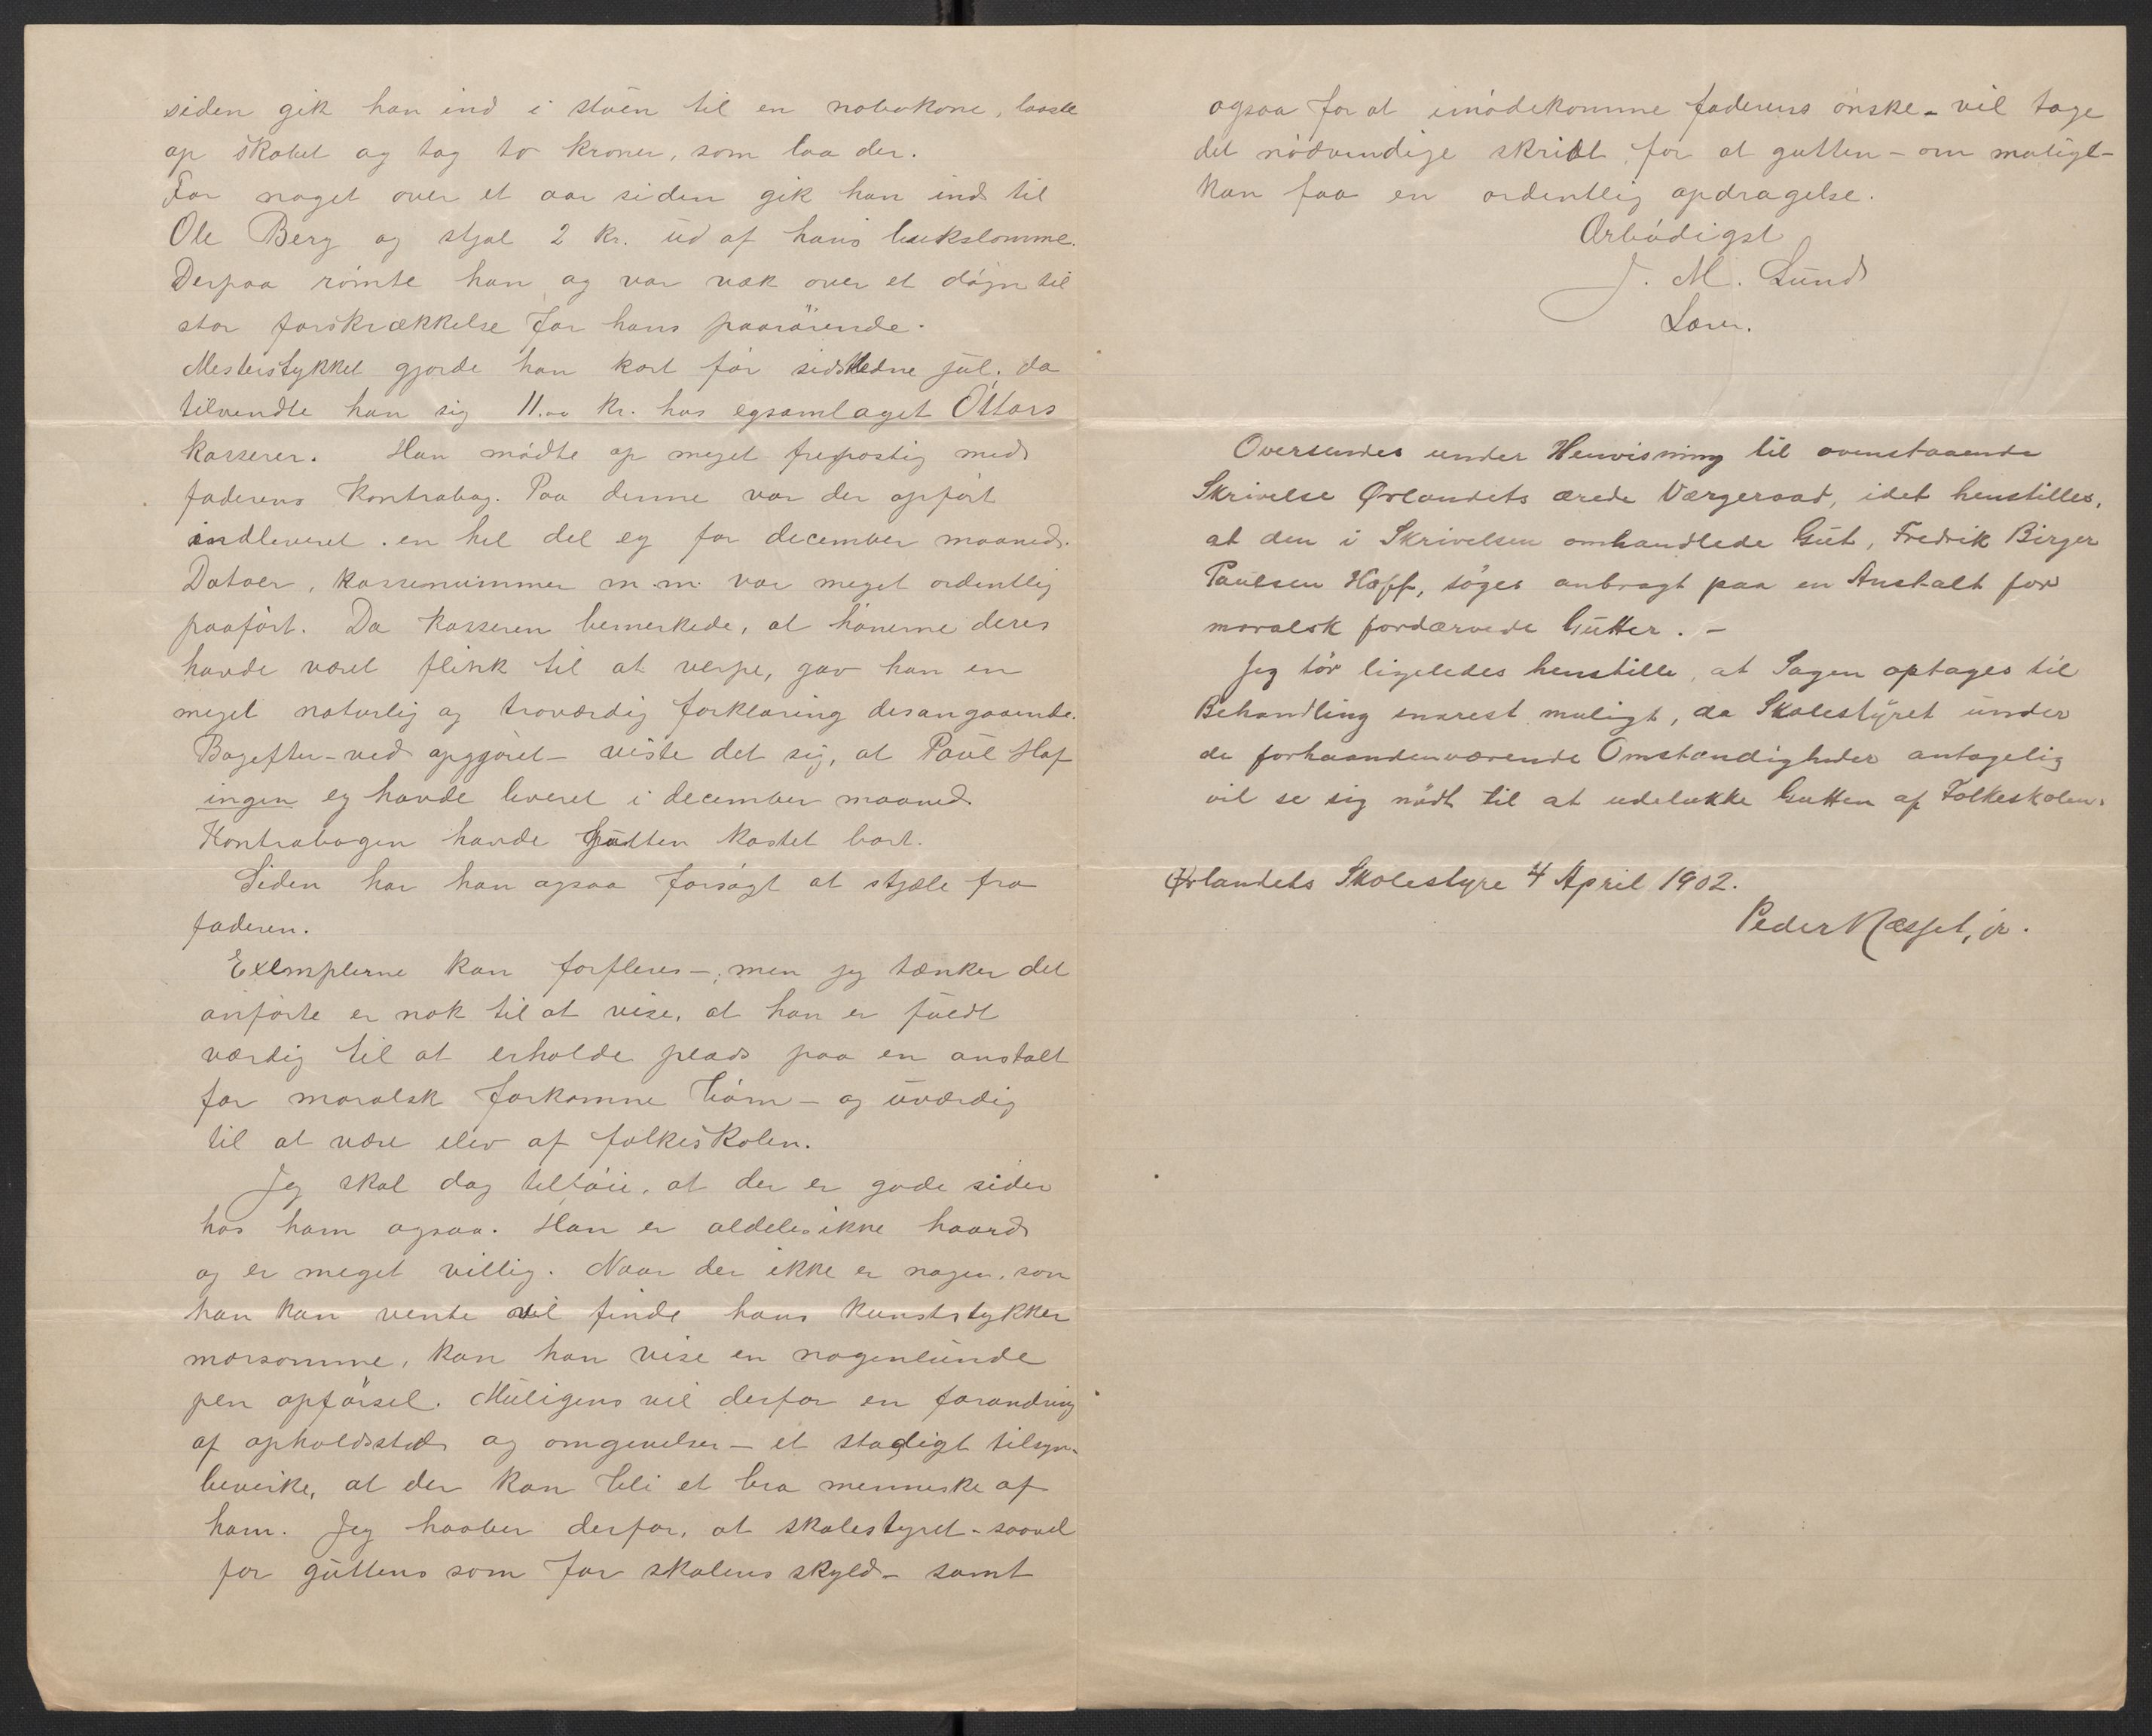 siden gik han ind i stuen til en nabokone, laaste
op skabet og tog to kroner, som laa der.
For noget over et aar siden gik han ind til
Ole Berg og stjal 2 kr. ud af hans bukselomme.
Derpaa rømte han og var væk over et døgn til
stor forskrækkelse for hans paarørende.
Mesterstykket gjorde han kort før sidstledne jul; da
tilvendte han sig 11.00 kr. hos egsamlaget Ottars
kasserer. Han mødte op meget frepostig med
faderens kontrabog. Paa denne var der opført
indleveret en hel del eg for december maaned.
Datoer, kassenummer m.m. var meget ordentlig
paaført. Da kasseren bemerkede, at hønerne deres
havde været flink til at verpe, gav han en
meget naturlig og troværdig forklaring desangaaende.
Bagefter – ved opgjøret – viste det sig, at Paul Hof
ingen eg havde leveret i december maaned.
Kontrabogen havde gutten kastet bort.
Siden har han ogsaa forsøgt at stjæle fra
faderen.
Exemplerne kan forfleres –; men jeg tænker det
anførte er nok til at vise, at han er fuldt
værdig til at erholde plads paa en anstalt
for moralsk forkomne børn – og uværdig
til at være elev af folkeskolen.
Jeg skal dog tilføie, at der er gode sider
hos ham ogsaa. Han er aldeles ikke haard
og er meget villig. Naar der ikke er nogen, som
han kan vente vil finde hans kunststykker
morsomme, kan han vise en nogenlunde
pen opførsel. Muligens vil derfor en forandring
af opholdssted og omgivelser – et stadigt tilsyn –
bevirke, at der kan bli et bra menneske af
ham. Jeg haaber derfor, at skolestyret – saavel
for guttens som for skolens skyld – samt
ogsaa for at imødekomme faderens ønske – vil tage
det nødvendige skridt for at gutten – om muligt –
kan faa en ordentlig opdragelse.
Ærbødigst
J. M. Lund
Lærer.
Oversendes under Henvisning til ovenstaaende
Skrivelse Ørlandets ærede Værgeraad, idet henstilles,
at den i Skrivelsen omhandlede Gut, Fredrik Birger
Paulsen Hoff, søges anbragt paa en Anstalt for
moralsk fordærvede Gutter. –
Jeg tør ligeledes henstille, at Sagen optages til
Behandling snarest muligt, da Skolestyret under
de forhaandenværende Omstændigheder antagelig
vil se sig nødt til at udelukke Gutten af Folkeskolen.
Ørlandets Skolestyre 4 April 1902.
Peder Næsset, jr.